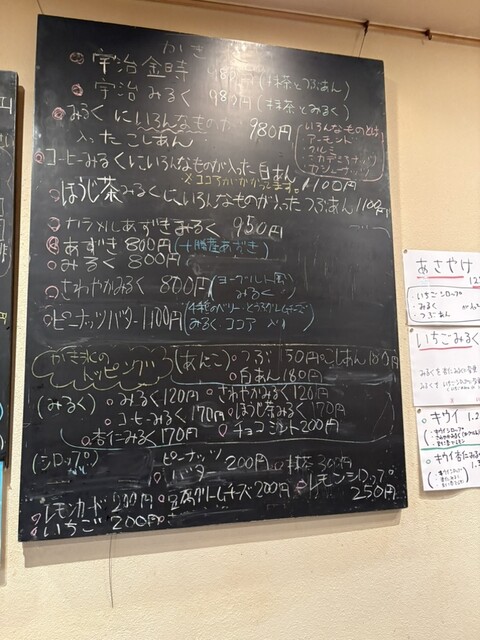 かき
宇治金時 980円(抹茶とつぶあん)
宇治みるく 980円(抹茶とみるく)
みるくにいろんなものが
入ったこしあん 980円
いろんなものとは
アーモンド
クルミ
マカデミアナッツ
カシューナッツ
コーヒーみるくにいろんなものが入った白あん 1100円
※ココアがかかってます。
ほうじ茶みるくにいろんなものが入ったつぶあん 1100円
カラメルあずきみるく 950円
あずき 800円(十勝産あずき)
みるく 800円
さわやかみるく 800円(ヨーグルト風みるく)
ピーナッツバター 1100円
みるく ココア 入り
かき氷のトッピング
(あんこ)つぶ 150円 こしあん 180円
白あん 180円
(みるく)みるく 120円 さわやか 120円
コーヒーみるく 170円 ほうじ茶みるく 170円
杏仁みるく 170円 チョコミント 200円
(シロップ)
ピーナッツバター 200円 抹茶 300円
レモンカード 200円 豆腐クリームチーズ 200円 レモンシロップ 250円
いちご 200円
あさやけ
いちごシロップ
みるく
つぶあん
いちごみるく
キウイ 1.2
キウイシロップ
キウイ杏仁みるく